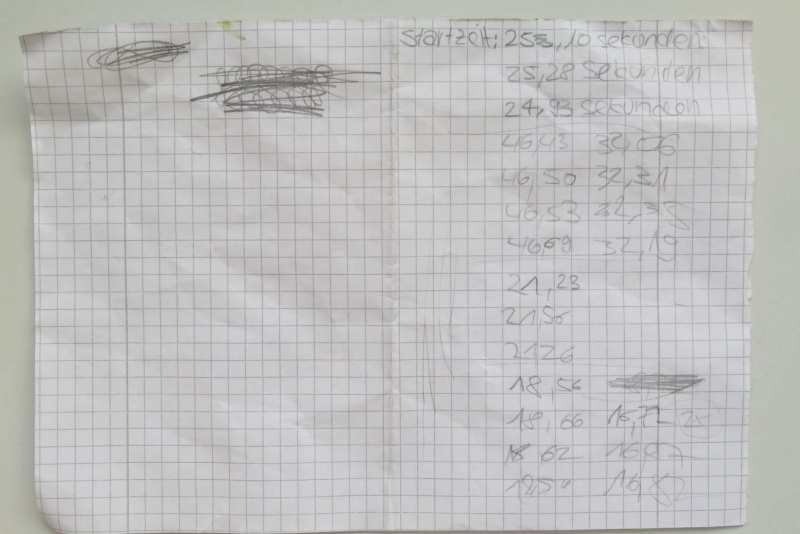 Startzeit: 25,10 sekunden
25,28 Sekunden
24,93 sekunden
46,43 34,06
46,50 32,31
46,53
46,69 32,19
21,23
2156
2126
18,56
18,66 16,72
62